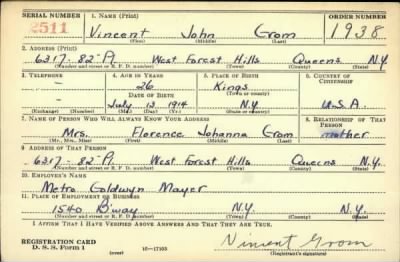 SERIAL NUMBER 1. NAME (Print) ORDER NUMBER
2511 Vincent John Grom 1938
(First) (Middle) (Last)
2. ADDRESS (Print)
6317-82 Pl. West Forest Hills Queens N.Y.
(Number and street or R. F. D. number) (Town) (County) (State)
3. TELEPHONE 4. AGE IN YEARS 5. PLACE OF BIRTH 6. COUNTRY OF CITIZENSHIP
- 26 Kings
DATE OF BIRTH (Town or county)
- July 13 1914 N.Y. U.S.A.
(Exchange) (Number) (Mo.) (Day) (Yr.) (State or country)
7. NAME OF PERSON WHO WILL ALWAYS KNOW YOUR ADDRESS 8. RELATIONSHIP OF THAT PERSON
Mrs. Florence Johanna Grom mother
(Mr., Mrs., Miss) (First) (Middle) (Last)
9. ADDRESS OF THAT PERSON
6317-82 Pl. West Forest Hills Queens N.Y.
(Number and street or R. F. D. number) (Town) (County) (State)
10. EMPLOYER'S NAME
Metro Goldwyn Mayer
11. PLACE OF EMPLOYMENT OR BUSINESS
1540 B'way N.Y. N.Y.
(Number and street or R. F. D. number) (Town) (County) (State)
I AFFIRM THAT I HAVE VERIFIED ABOVE ANSWERS AND THAT THEY ARE TRUE.
REGISTRATION CARD
D. S. S. Form 1 (over) 16-17105 Vincent Grom
(Registrant's signature)